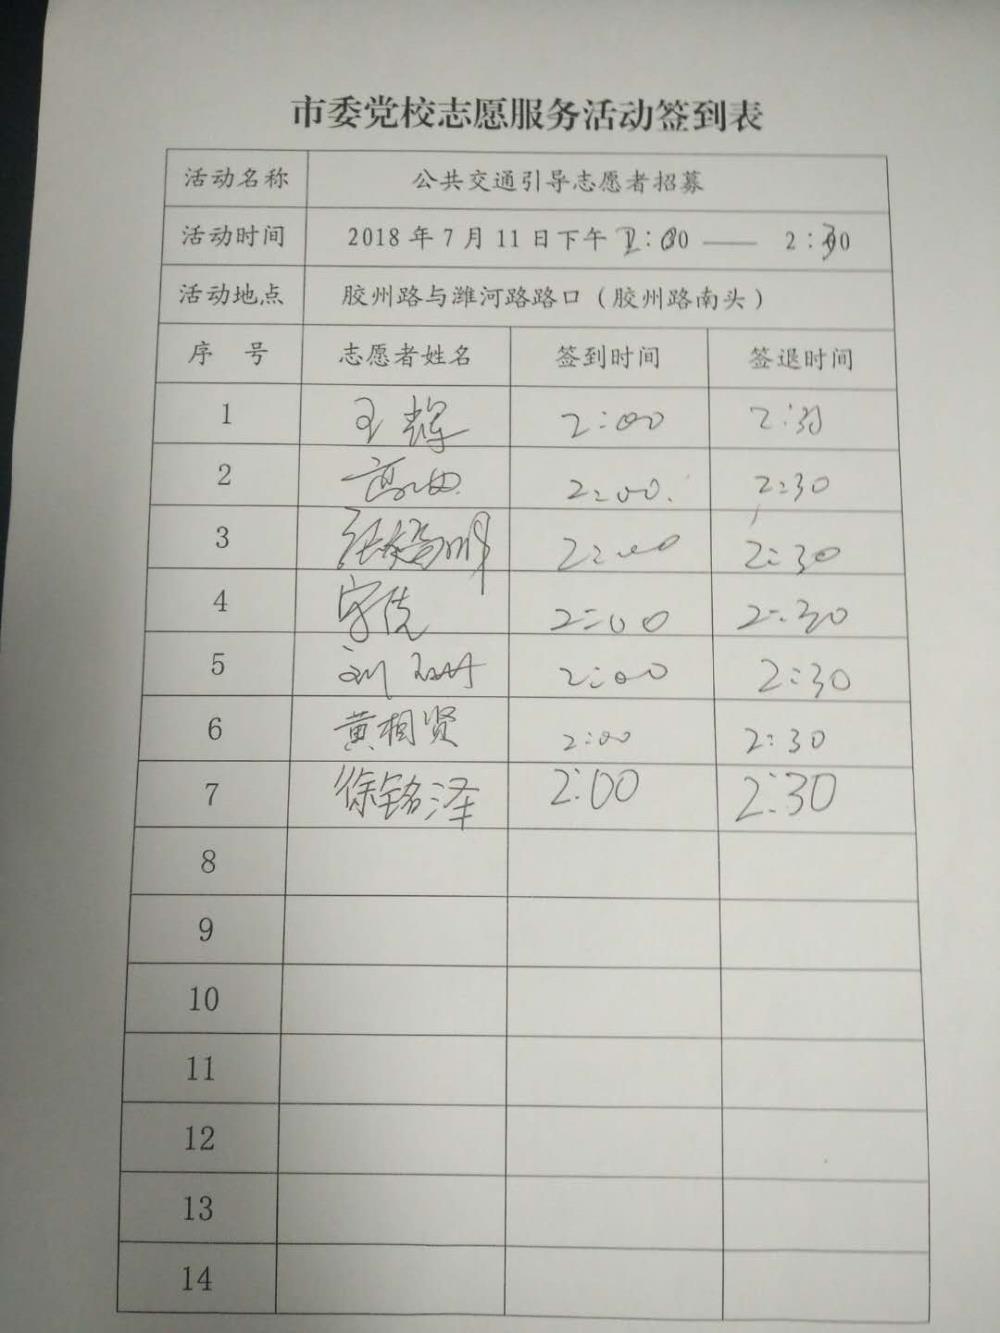 市委党校志愿服务活动签到表
活动名称 公共交通引导志愿者招募
活动时间 2018年7月11日下午2:00——2:30
活动地点 胶州路与潍河路路口（胶州路南头）
序 号 志愿者姓名 签到时间 签退时间
1 王辉 2:00 2:30
2 2:00. 2:30
3 2:00 2:30
4 2:00 2:30
5 刘 2:00 2:30
6 黄相贤 2:00 2:30
7 徐铭泽 2:00 2:30
8
9
10
11
12
13
14